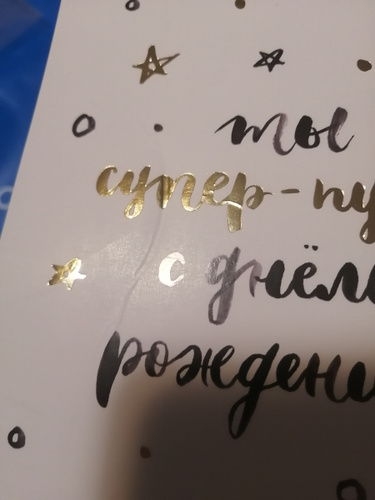 ты
супер-пу
с днём
рождени